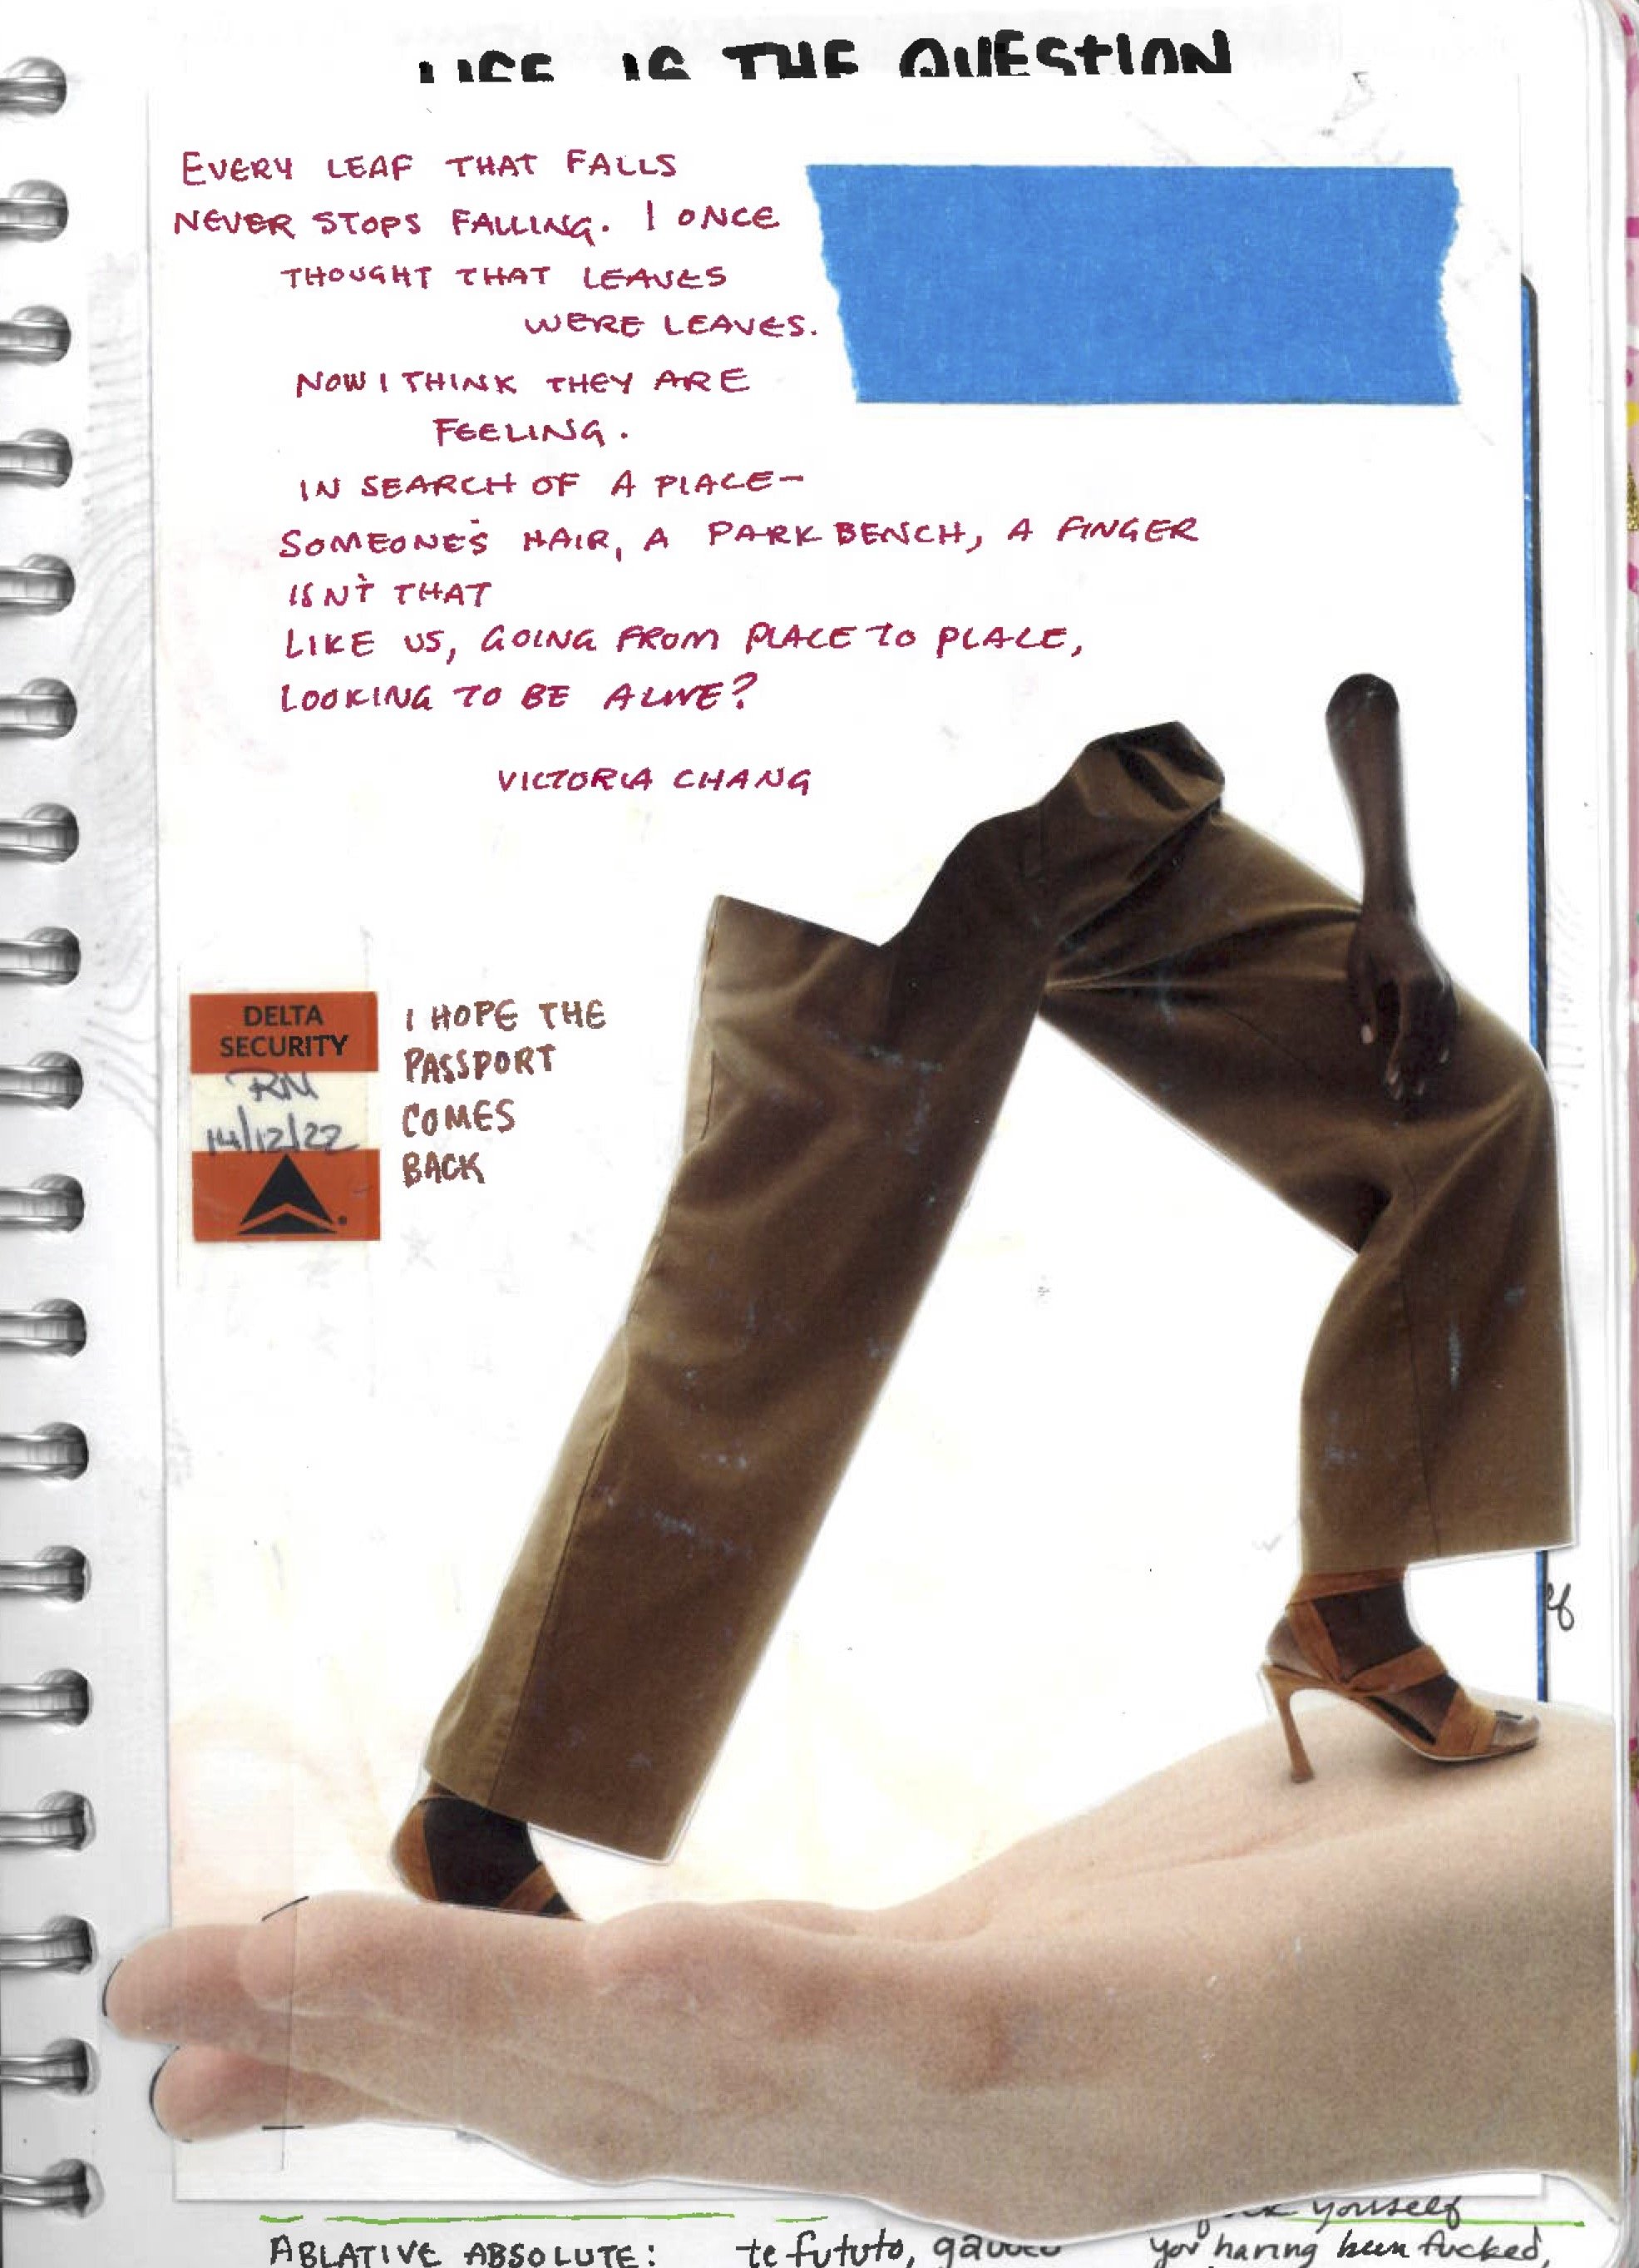 LIFE IS THE QUESTION
EVERY LEAF THAT FALLS
NEVER STOPS FALLING. I ONCE
THOUGHT THAT LEAVES
WERE LEAVES.
NOW I THINK THEY ARE
FEELING.
IN SEARCH OF A PLACE-
SOMEONE'S HAIR, A PARK BENCH, A FINGER
ISN'T THAT
LIKE US, GOING FROM PLACE TO PLACE,
LOOKING TO BE ALIVE?
VICTORIA CHANG
DELTA
SECURITY
RM
14/12/22
I HOPE THE
PASSPORT
COMES
BACK
yourself
ABLATIVE ABSOLUTE: te fututo, you having been fucked,